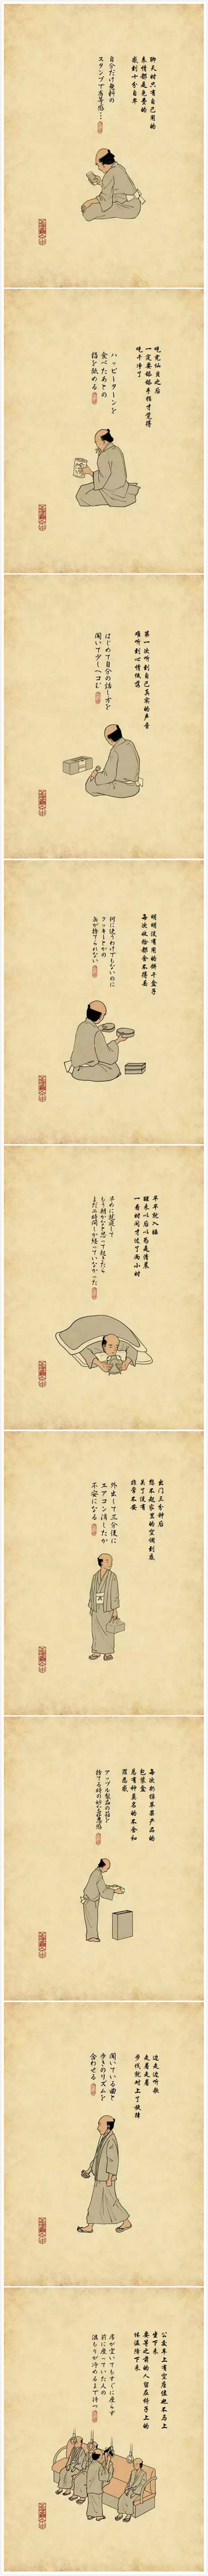 聊天时只有自己用的
表情都是免费的
感到十分自卑
自分だけ無料の
スタンプで劣等感…
吃完仙贝之后
一定要舔舔手指才觉得
吃干净了
ハッピーターンを
食べたあとの
指を舐める
第一次听到自己真实的声音
难听到心情低落
はじめて自分の話し方を
聞いて少しヘコむ
明明没有用的饼干盒子
每次收拾都舍不得丢
何に使うわけでもないのに
クッキーとかの
缶が捨てられない
早早就入睡
醒来以后以为是清晨
一看时间才过了两小时
早めに就寝して
もう朝かなと思って起きたら
まだ二時間しか経っていなかった
出门三分钟后
想不起家里的空调到底
关了没有
非常不安
外出して三分後に
エアコン消したか
不安になる
每次扔掉苹果产品的
包装盒
总有种莫名的不舍和
罪恶感
アップル製品の箱を
捨てる時の妙な罪悪感
边走边听歌
走着走着
步伐就对上了旋律
聞いている曲と
歩きのリズムを
合わせる
公交车上有空座位也不马上
坐下来
要等之前的人留在椅子上的
体温冷下来
席が空いてもすぐに座らず
前に座っていた人の
温もりが冷めるまで待つ